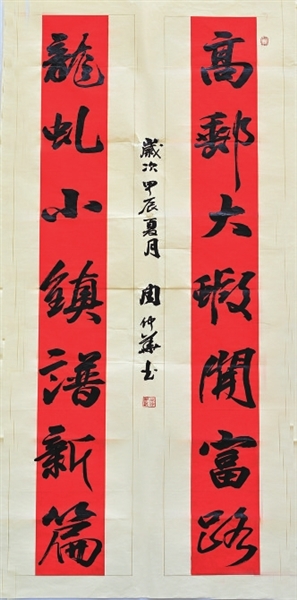 高鄠大蝦開富路
龍虬小鎮譜新篇
歲次甲辰夏月 周仲華書